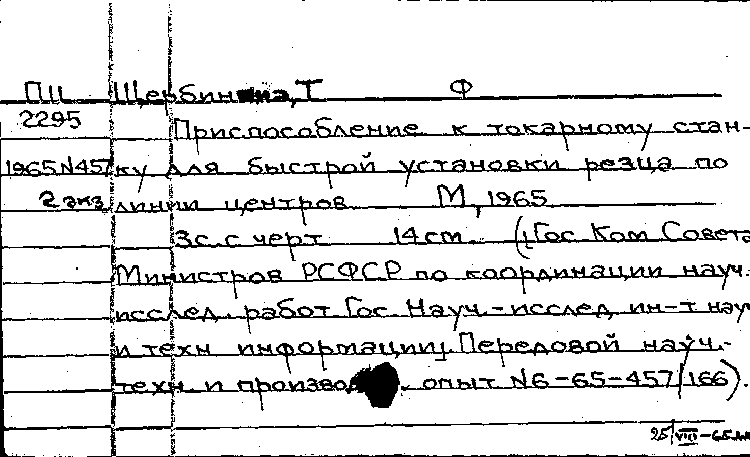 ПЦ Щербинина, Т Ф
2295 Приспособление к токарному стан-
1965 N457 ку для быстрой установки резца по
2 экз линии центров М, 1965
3с. с черт 14 cm (Гос Ком Совета
Министров РСФСР по координации науч.
исслед. работ Гос. Науч.-исслед ин-т науч
и техн информации). Передовой науч.-
техн и производ. опыт N6-65-457/166).
25/VIII-65